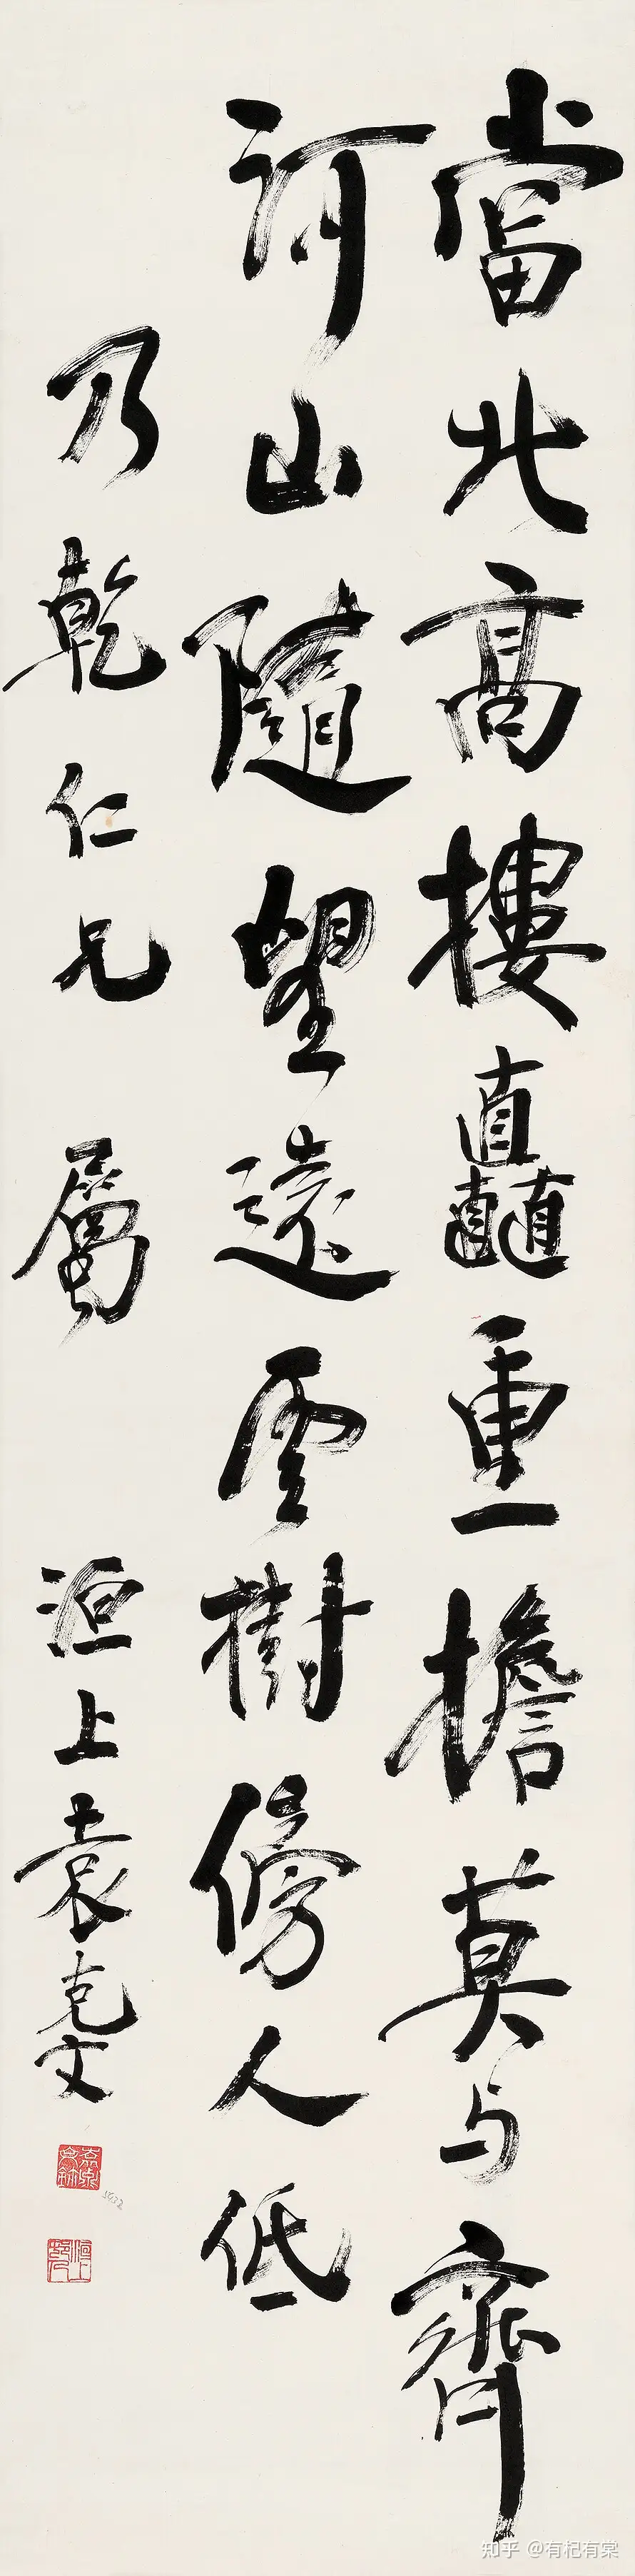 當北高樓矗重檐莫与齊
河山隨望遠雲樹傍人低
乃乾仁兄屬 洹上袁克文
知乎 @有杞有棠